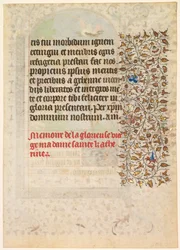 cis tui morbidum ignem
extingui et membris egris
refrigeria prestari fac nos
propiciis ipsius meritis
et precibus a gehenne incen
diis liberatos et integros men
te et corpore tibi feliciter in
gloria presentari. Per xpm
dominum nostrum. am
Memoire de la glorieuse vier
ge ma dame sainte kathe
rine